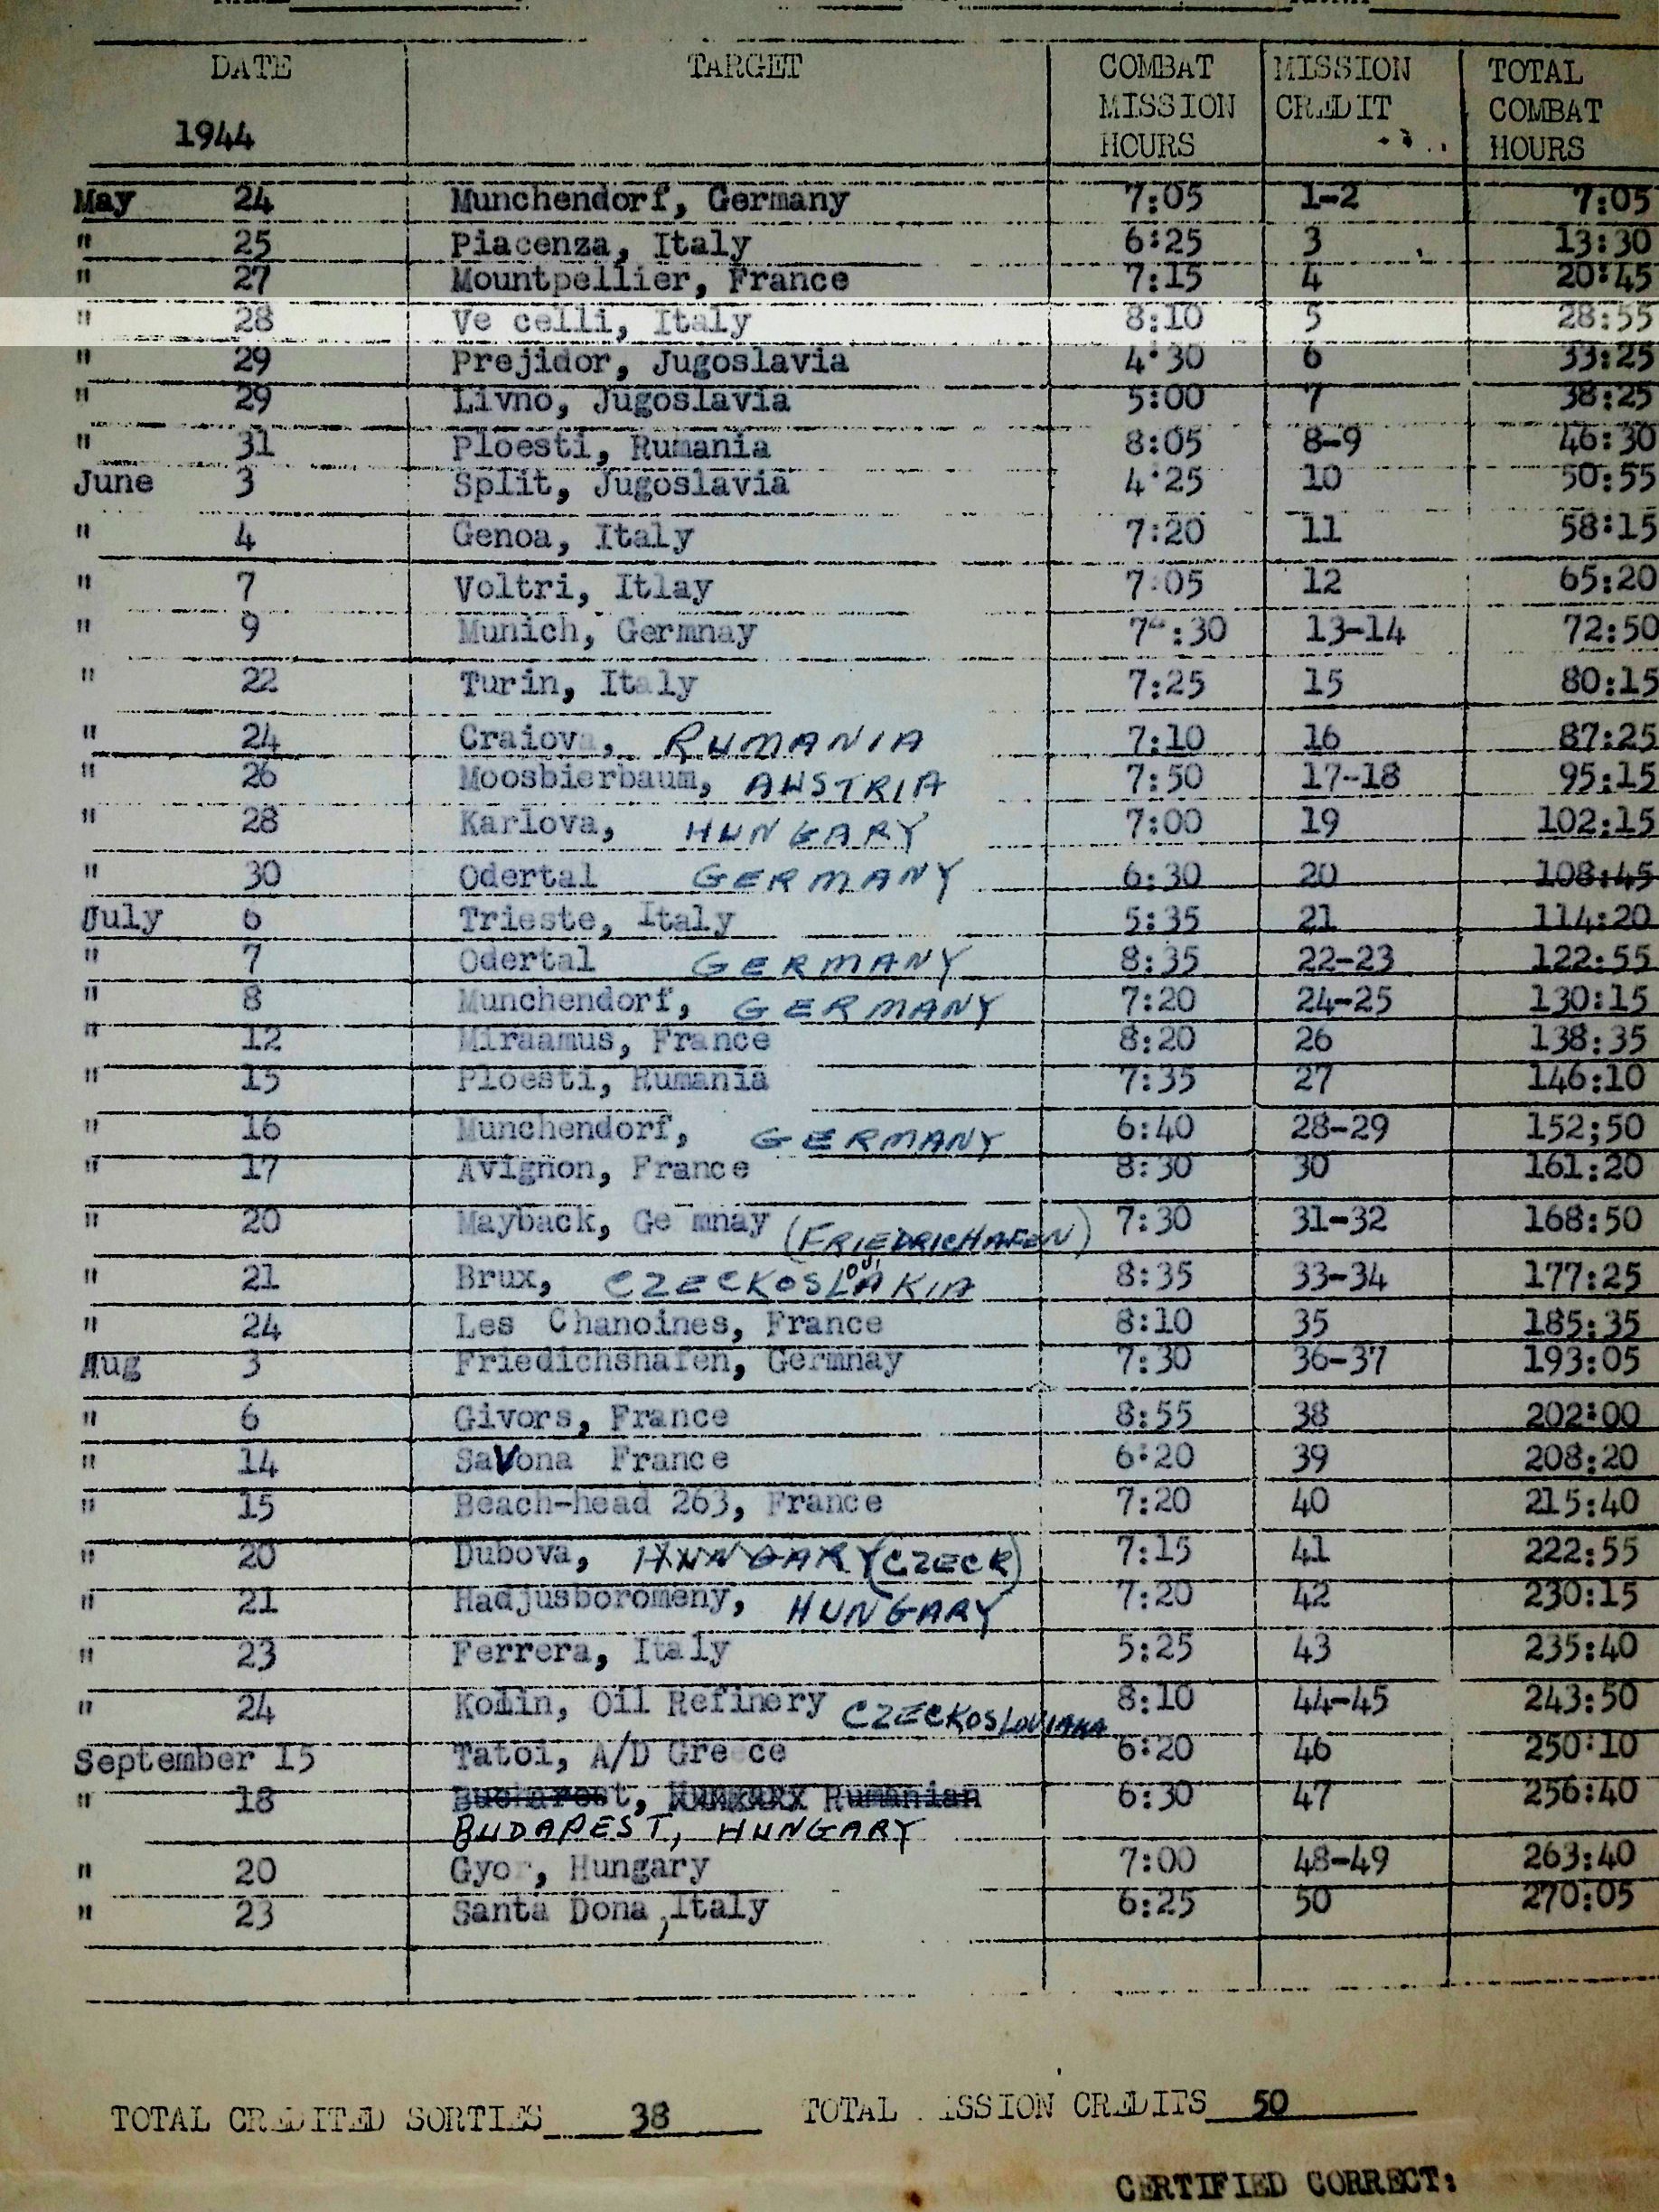 DATE TARGET COMBAT MISSION TOTAL
MISSION CREDIT COMBAT
1944 HOURS HOURS
May 24 Munchendorf, Germany 7:05 1-2 7:05
" 25 Piacenza, Italy 6:25 3 13:30
" 27 Mountpellier, France 7:15 4 20:45
" 28 Ve celli, Italy 8:10 5 28:55
" 29 Prejidor, Jugoslavia 4:30 6 33:25
" 29 Livno, Jugoslavia 5:00 7 38:25
" 31 Ploesti, Rumania 8:05 8-9 46:30
June 3 Split, Jugoslavia 4:25 10 50:55
" 4 Genoa, Italy 7:20 11 58:15
" 7 Voltri, Itlay 7:05 12 65:20
" 9 Munich, Germnay 7:30 13-14 72:50
" 22 Turin, Italy 7:25 15 80:15
" 24 Craiova, RUMANIA 7:10 16 87:25
" 26 Moosbierbaum, AUSTRIA 7:50 17-18 95:15
" 28 Karlova, HUNGARY 7:00 19 102:15
" 30 Odertal GERMANY 6:30 20 108:45
July 6 Trieste, Italy 5:35 21 114:20
" 7 Odertal GERMANY 8:35 22-23 122:55
" 8 Munchendorf, GERMANY 7:20 24-25 130:15
" 12 Miraamus, France 8:20 26 138:35
" 15 Ploesti, Rumania 7:35 27 146:10
" 16 Munchendorf, GERMANY 6:40 28-29 152;50
" 17 Avignon, France 8:30 30 161:20
" 20 Mayback, Ge mnay (FRIEDRICHAFEN) 7:30 31-32 168:50
" 21 Brux, CZECKOSLOVAKIA 8:35 33-34 177:25
" 24 Les Chanoines, France 8:10 35 185:35
Aug 3 Friedichshafen, Germnay 7:30 36-37 193:05
" 6 Givors, France 8:55 38 202:00
" 14 SaVona France 6:20 39 208:20
" 15 Beach-head 263, France 7:20 40 215:40
" 20 Dubova, HUNGARY (CZECK) 7:15 41 222:55
" 21 Hadjusboromeny, HUNGARY 7:20 42 230:15
" 23 Ferrera, Italy 5:25 43 235:40
" 24 Kolin, Oil Refinery CZECKOSLOVIAKA 8:10 44-45 243:50
September 15 Tatoi, A/D Gre ce 6:20 46 250:10
" 18 Bucharest, Rumanian 6:30 47 256:40
BUDAPEST, HUNGARY
" 20 Gyor, Hungary 7:00 48-49 263:40
" 23 Santa Dona, Italy 6:25 50 270:05
TOTAL CREDITED SORTIES 38 TOTAL ISSION CREDITS 50
CERTIFIED CORRECT: